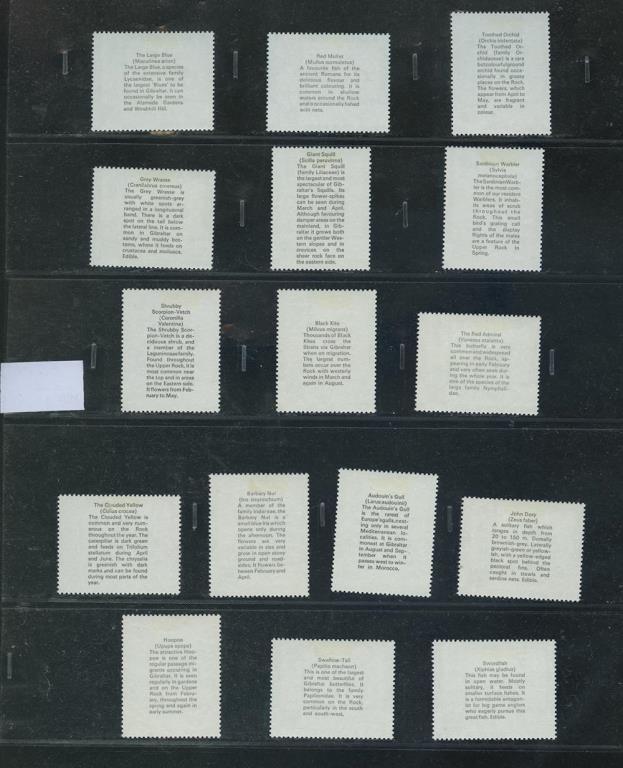 The Large Blue
(Maculinea arion)
The Large Blue, a species
of the extensive family
Lycaenidae, is one of
the largest 'Blues' to be
found in Gibraltar. It can
occasionally be seen in
the Alameda Gardens
and Windmill Hill.
Red Mullet
(Mullus surmuletus)
A favourite fish of the
ancient Romans for its
delicious flavour and
brilliant colouring. It is
common in shallow
waters around the Rock
and is occasionally fished
with nets.
Toothed Orchid
(Orchis tridentata)
The Toothed Or-
chid (family Or-
chidaceae) is a rare
but colourful ground
orchid found occa-
sionally in grassy
places on the Rock.
The flowers, which
appear from April to
May, are fragrant
and variable in
colour.
Grey Wrasse
(Crenilabrus cinereus)
The Grey Wrasse is
usually greenish-grey
with white spots ar-
ranged in a longitudinal
band. There is a dark
spot on the tail below
the lateral line. It is com-
mon in Gibraltar on
sandy and muddy bot-
toms, where it feeds on
crustacea and molluscs.
Edible.
Giant Squill
(Scilla peruviana)
The Giant Squill
(family Liliaceae) is
the largest and most
spectacular of Gib-
raltar's Squills. Its
large flower-spikes
can be seen during
March and April.
Although favouring
damper areas on the
mainland, in Gib-
raltar it grows both
on the gentler Wes-
tern slopes and in
crevices on the
sheer rock face on
the eastern side.
Sardinian Warbler
(Sylvia
melanocephala)
The Sardinian Warb-
ler is the most com-
mon of our resident
Warblers. It inhab-
its areas of scrub
throughout the
Rock. This small
bird's grating call
and the display
flights of the males
are a feature of the
Upper Rock in
Spring.
Shrubby
Scorpion-Vetch
(Coronilla
Valentina)
The Shrubby Scor-
pion-Vetch is a de-
ciduous shrub, and
a member of the
Leguminosae family.
Found throughout
the Upper Rock, it is
most common near
the top and in areas
on the Eastern side.
It flowers from Feb-
ruary to May.
Black Kite
(Milvus migrans)
Thousands of Black
Kites cross the
Straits via Gibraltar
when on migration.
The largest num-
bers occur over the
Rock with westerly
winds in March and
again in August.
The Red Admiral
(Vanessa atalanta)
This butterfly is very
common and widespread
all over the Rock, ap-
pearing in early February
and very often seen dur-
ing the whole year. It is
one of the species of the
large family Nymphali-
dae.
The Clouded Yellow
(Colias crocea)
The Clouded Yellow is
common and very num-
erous on the Rock
throughout the year. The
caterpillar is dark green
and feeds on Trifolium
stellatum during April
and June. The chrysalis
is greenish with dark
marks and can be found
during most parts of the
year.
Barbary Nut
(Iris sisyrinchium)
A member of the
family Iridaceae, the
Barbary Nut is a
small blue Iris which
opens only during
the afternoon. The
flowers are very
variable in size and
grow in open stony
ground and road-
sides. It flowers be-
tween February and
April.
Audouin's Gull
(Larus audouinii)
The Audouin's Gull
is the rarest of
Europe's gulls, nest-
ing only in several
Mediterranean lo-
calities. It is com-
monest in Gibraltar
in August and Sep-
tember when it
passes west to win-
ter in Morocco.
John Dory
(Zeus faber)
A solitary fish which
ranges in depth from
20 to 150 m. Dorsally
brownish-grey. Laterally
greyish-green or yellow-
ish, with a yellow-edged
black spot behind the
pectoral fins. Often
caught in trawls and
sardine nets. Edible.
Hoopoe
(Upupa epops)
The attractive Hoo-
poe is one of the
regular passage mi-
grants occurring in
Gibraltar. It is seen
regularly in gardens
and on the Upper
Rock from Febru-
ary, throughout the
spring and again in
early summer.
Swallow-Tail
(Papilio machaon)
This is one of the largest
and most beautiful of
Gibraltar butterflies. It
belongs to the family
Papilionidae. It is very
common on the Rock,
particularly in the south
and south-west.
Swordfish
(Xiphias gladius)
This fish may be found
in open water. Mostly
solitary, it feeds on
smaller surface fishes. It
is a formidable antagon-
ist for big game anglers
who eagerly pursue this
great fish. Edible.